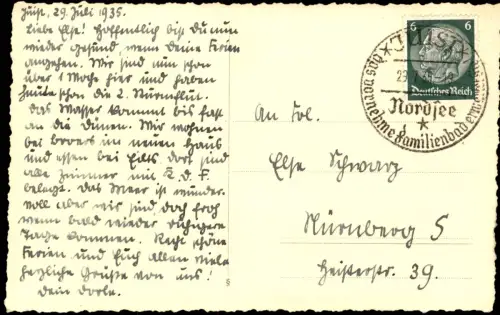 Juist, 29. Juli 1935.
Liebe Else! Hoffentlich bist Du nun
wieder gesund, wenn Deine Ferien
angehen. Wir sind nun schon
über 1 Woche hier und haben
heute schon die 2. Sturmflut.
Das Wasser kommt bis fast
an die Dünen. Wir wohnen
bei im neuen Haus
und essen bei Eilts, dort sind
alle Zimmer mit K. d. F.
belegt. Das Meer ist wunder-
voll aber wir sind doch froh
wenn bald wieder ruhigere
Tage kommen. Recht schöne
Ferien und Euch allen viele
herzliche Grüße von uns!
Dein Dorle.
6 6
JUIST
29.7.35
Deutsches Reich
das vornehme Familienbad
Nordsee
An Frl.
Else Schwarz
Nürnberg S
Heisterstr. 39.